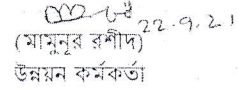 22.9.21
(মামুনুর রশীদ)
উন্নয়ন কর্মকর্তা